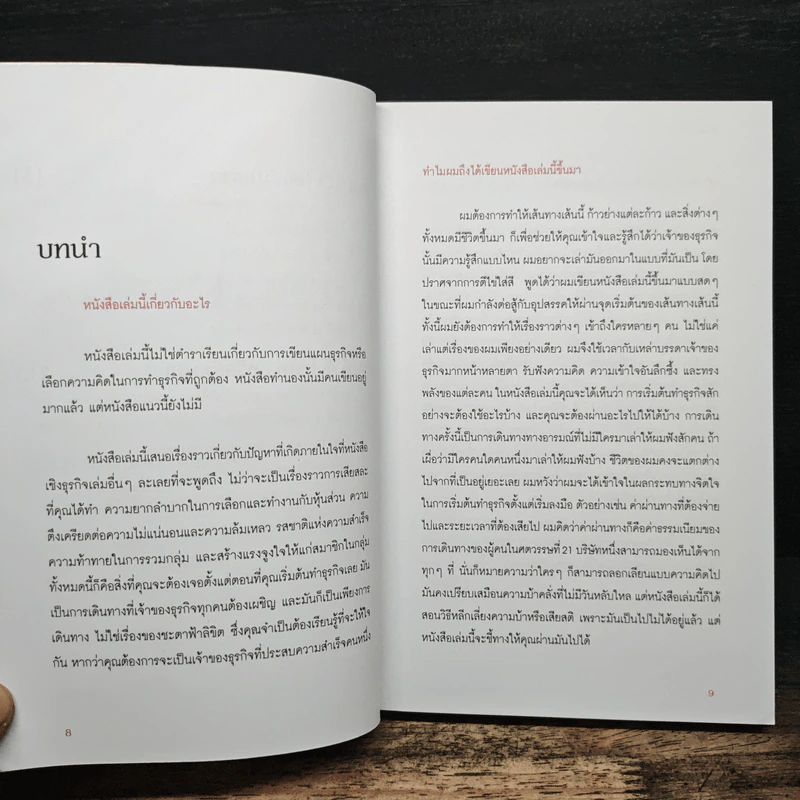 บทนำ
หนังสือเล่มนี้เกี่ยวกับอะไร
หนังสือเล่มนี้ไม่ใช่ตำราเรียนเกี่ยวกับการเขียนแผนธุรกิจหรือ
เลือกความคิดในการทำธุรกิจที่ถูกต้อง หนังสือทำนองนั้นมีคนเขียนอยู่
มากแล้ว แต่หนังสือแนวนี้ยังไม่มี
หนังสือเล่มนี้เสนอเรื่องราวเกี่ยวกับปัญหาที่เกิดภายในใจที่หนังสือ
เชิงธุรกิจเล่มอื่นๆ ละเลยที่จะพูดถึง ไม่ว่าจะเป็นเรื่องราวการเสียสละ
ที่คุณได้ทำ ความยากลำบากในการเลือกและทำงานกับหุ้นส่วน ความ
ตึงเครียดต่อความไม่แน่นอนและความล้มเหลว รสชาติแห่งความสำเร็จ
ความท้าทายในการรวมกลุ่ม และสร้างแรงจูงใจให้แก่สมาชิกในกลุ่ม
ทั้งหมดนี้ก็คือสิ่งที่คุณจะต้องเจอตั้งแต่ตอนที่คุณเริ่มต้นทำธุรกิจเลย มัน
เป็นการเดินทางที่เจ้าของธุรกิจทุกคนต้องเผชิญ และมันก็เป็นเพียงการ
เดินทาง ไม่ใช่เรื่องของชะตาฟ้าลิขิต ซึ่งคุณจำเป็นต้องเรียนรู้ที่จะให้ใจ
กัน หากว่าคุณต้องการจะเป็นเจ้าของธุรกิจที่ประสบความสำเร็จคนหนึ่ง
8
ทำไมผมถึงได้เขียนหนังสือเล่มนี้ขึ้นมา
ผมต้องการทำให้เส้นทางเส้นนี้ ก้าวย่างแต่ละก้าว และสิ่งต่างๆ
ทั้งหมดมีชีวิตขึ้นมา ก็เพื่อช่วยให้คุณเข้าใจและรู้สึกได้ว่าเจ้าของธุรกิจ
นั้นมีความรู้สึกแบบไหน ผมอยากจะเล่ามันออกมาในแบบที่มันเป็น โดย
ปราศจากการตีไข่ใส่สี พูดได้ว่าผมเขียนหนังสือเล่มนี้ขึ้นมาแบบสดๆ
ในขณะที่ผมกำลังต่อสู้กับอุปสรรคให้ผ่านจุดเริ่มต้นของเส้นทางเส้นนี้
ทั้งนี้ผมยังต้องการทำให้เรื่องราวต่างๆ เข้าถึงใครหลายๆ คน ไม่ใช่แค่
เล่าแต่เรื่องของผมเพียงอย่างเดียว ผมจึงใช้เวลากับเหล่าบรรดาเจ้าของ
ธุรกิจมากหน้าหลายตา รับฟังความคิด ความเข้าใจอันลึกซึ้ง และทรง
พลังของแต่ละคน ในหนังสือเล่มนี้คุณจะได้เห็นว่า การเริ่มต้นทำธุรกิจสัก
อย่างจะต้องใช้อะไรบ้าง และคุณจะต้องผ่านอะไรไปให้ได้บ้าง การเดิน
ทางครั้งนี้เป็นการเดินทางทางอารมณ์ที่ไม่มีใครมาเล่าให้ผมฟังสักคน ถ้า
เผื่อว่ามีใครคนใดคนหนึ่งมาเล่าให้ผมฟังบ้าง ชีวิตของผมคงจะแตกต่าง
ไปจากที่เป็นอยู่เยอะเลย ผมหวังว่าผมจะได้เข้าใจในผลกระทบทางจิตใจ
ในการเริ่มต้นทำธุรกิจตั้งแต่เริ่มลงมือ ตัวอย่างเช่น ค่าผ่านทางที่ต้องจ่าย
ไปและระยะเวลาที่ต้องเสียไป ผมคิดว่าค่าผ่านทางก็คือค่าธรรมเนียมของ
การเดินทางของผู้คนในศตวรรษที่ 21 บริษัทหนึ่งสามารถมองเห็นได้จาก
ทุกๆ ที่ นั่นก็หมายความว่าใครๆ ก็สามารถลอกเลียนแบบความคิดไป
มันคงเปรียบเสมือนความบ้าคลั่งที่ไม่มีวันหลับใหล แต่หนังสือเล่มนี้ก็ได้
สอนวิธีหลีกเลี่ยงความบ้าหรือเสียสติ เพราะมันเป็นไปไม่ได้อยู่แล้ว แต่
หนังสือเล่มนี้จะชี้ทางให้คุณผ่านมันไปได้
9